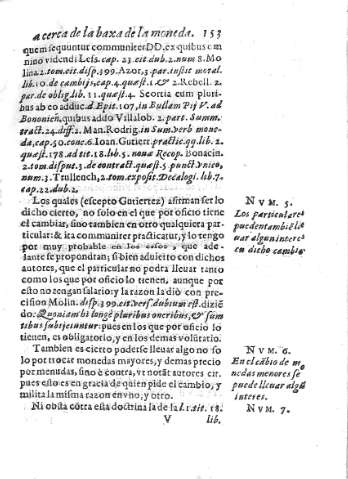 acerca de la baxa de la moneda. 153
quem sequuntur communiter DD. ex quibus om
nino videndi Less. cap. 23. eit. dub. 2. num 8. Mo
lina 2. tom. cit. disp. 399. Azor, 3. par. instit moral.
lib. 10. de cambijs, cap. 4. quæst. 1. & 2. Rebell. 2.
par. de oblig. lib. 11. quæst. 4. Scortia cum pluri-
bus ab eo adduc. d. Epit. 107, in Bullam Pij V. ad
Bononieñ, quibus addo Villalob. 2. part. Summ.
tract. 24. diff. 2. Man. Rodrig. in Sum. verb mone-
da, cap. 50. conc. 6. Ioan. Gutierr. practic. qq. lib. 2.
quæst. 178. ad tit. 18. lib. 5. nouæ Recop. Bonacin.
2. tom. disput. 3. de contract. quæst. 5. punct. vnico,
num. 3. Trullench, 2. tom. exposit. Decalogi. lib. 7.
cap. 22. dub. 2.
Los quales (escepto Gutierrez) afirman ser lo
dicho cierto, no solo en el que por oficio tiene
el cambiar, sino tambien en otro qualquiera par-
ticular: & ita communiter practicatur, y lo tengo
por muy probable en los casos, que ade-
lante se propondran; si bien aduierto con dichos
autores, que el particular no podra lleuar tanto
como los que por oficio lo tienen, aunque por
esto no tengan salario, y la razon la diò con pre-
cision Molin. disp. 399. cit. vers. dubium est. dizien
do: Quoniam hi longè pluribus oneribus, & sum
tibus subijciuntur: pues en los que por oficio lo
tienen, es obligatorio, y en los demas voluntario.
Tambien es cierto poderse lleuar algo no so
lo por trocar monedas mayores, y demas precio
por menudas, sino è contra, vt notàt autores cit.
pues esto es en gracia de quien pide el cambio, y
milita la misma razon en vno, y otro.
Ni obsta cōtra esta doctrina la de la l. 1. tit. 18.
V lib.
NVM. 5.
Los particulares
pueden tambiē lle
uar algun interes
en dicho cambio.
NVM. 6.
En el cābio de mo
nedas menores se
puede lleuar algū
interes.
NVM. 7.